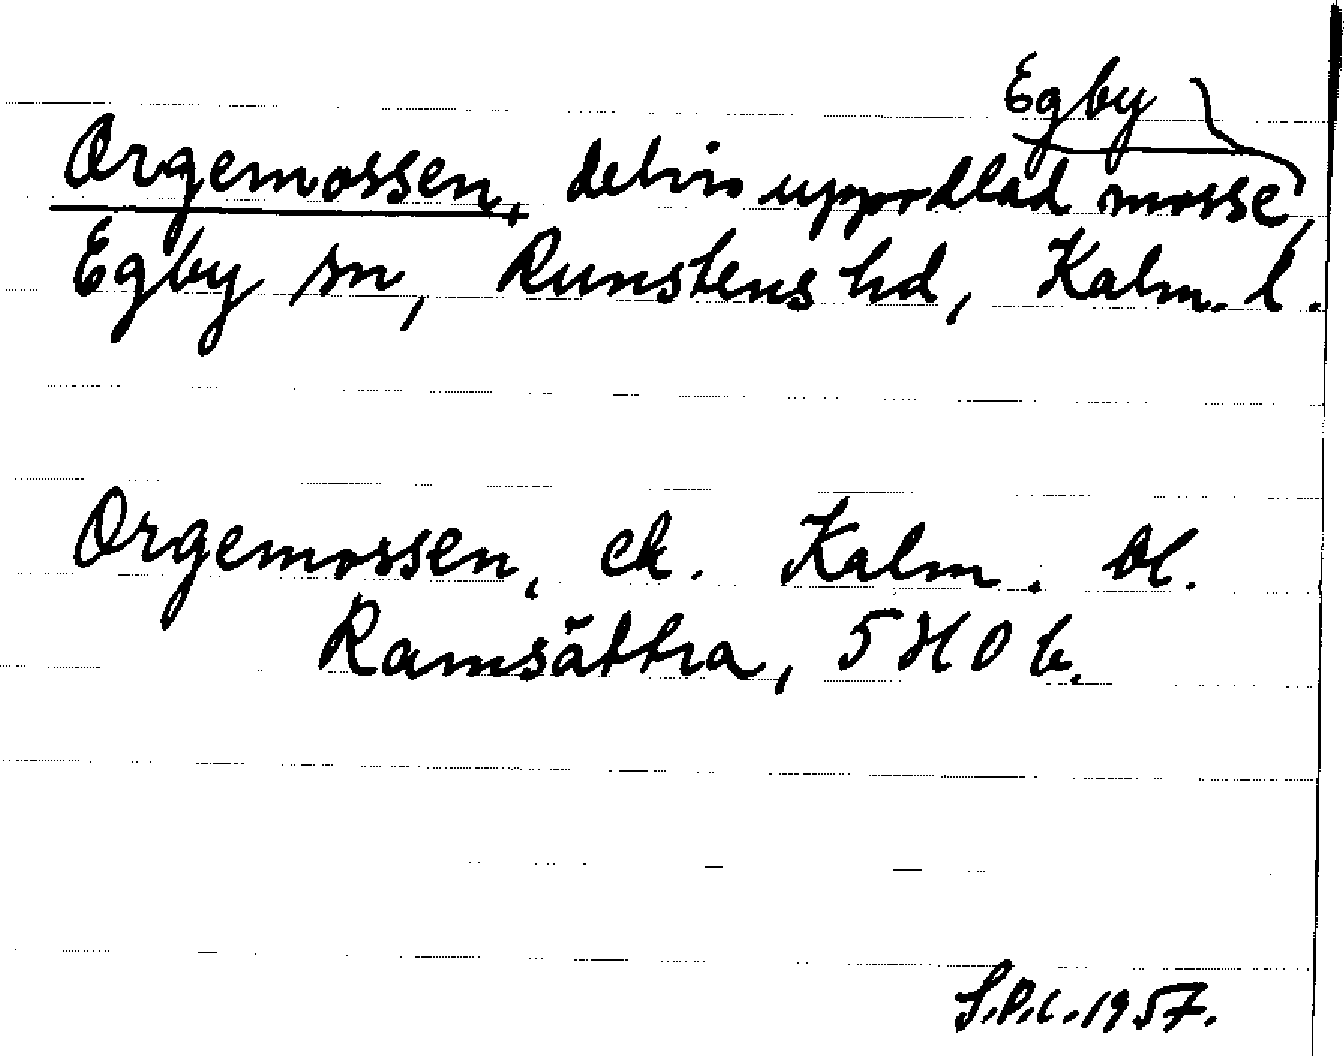 Egby
Orgemossen, delvis uppodlad mosse,
Egby sn, Runstens hd, Kalm. l.
Orgemossen, ek. Kalm. bl.
Ramsättra, 5 H 0 b.
S.P.L. 1957.